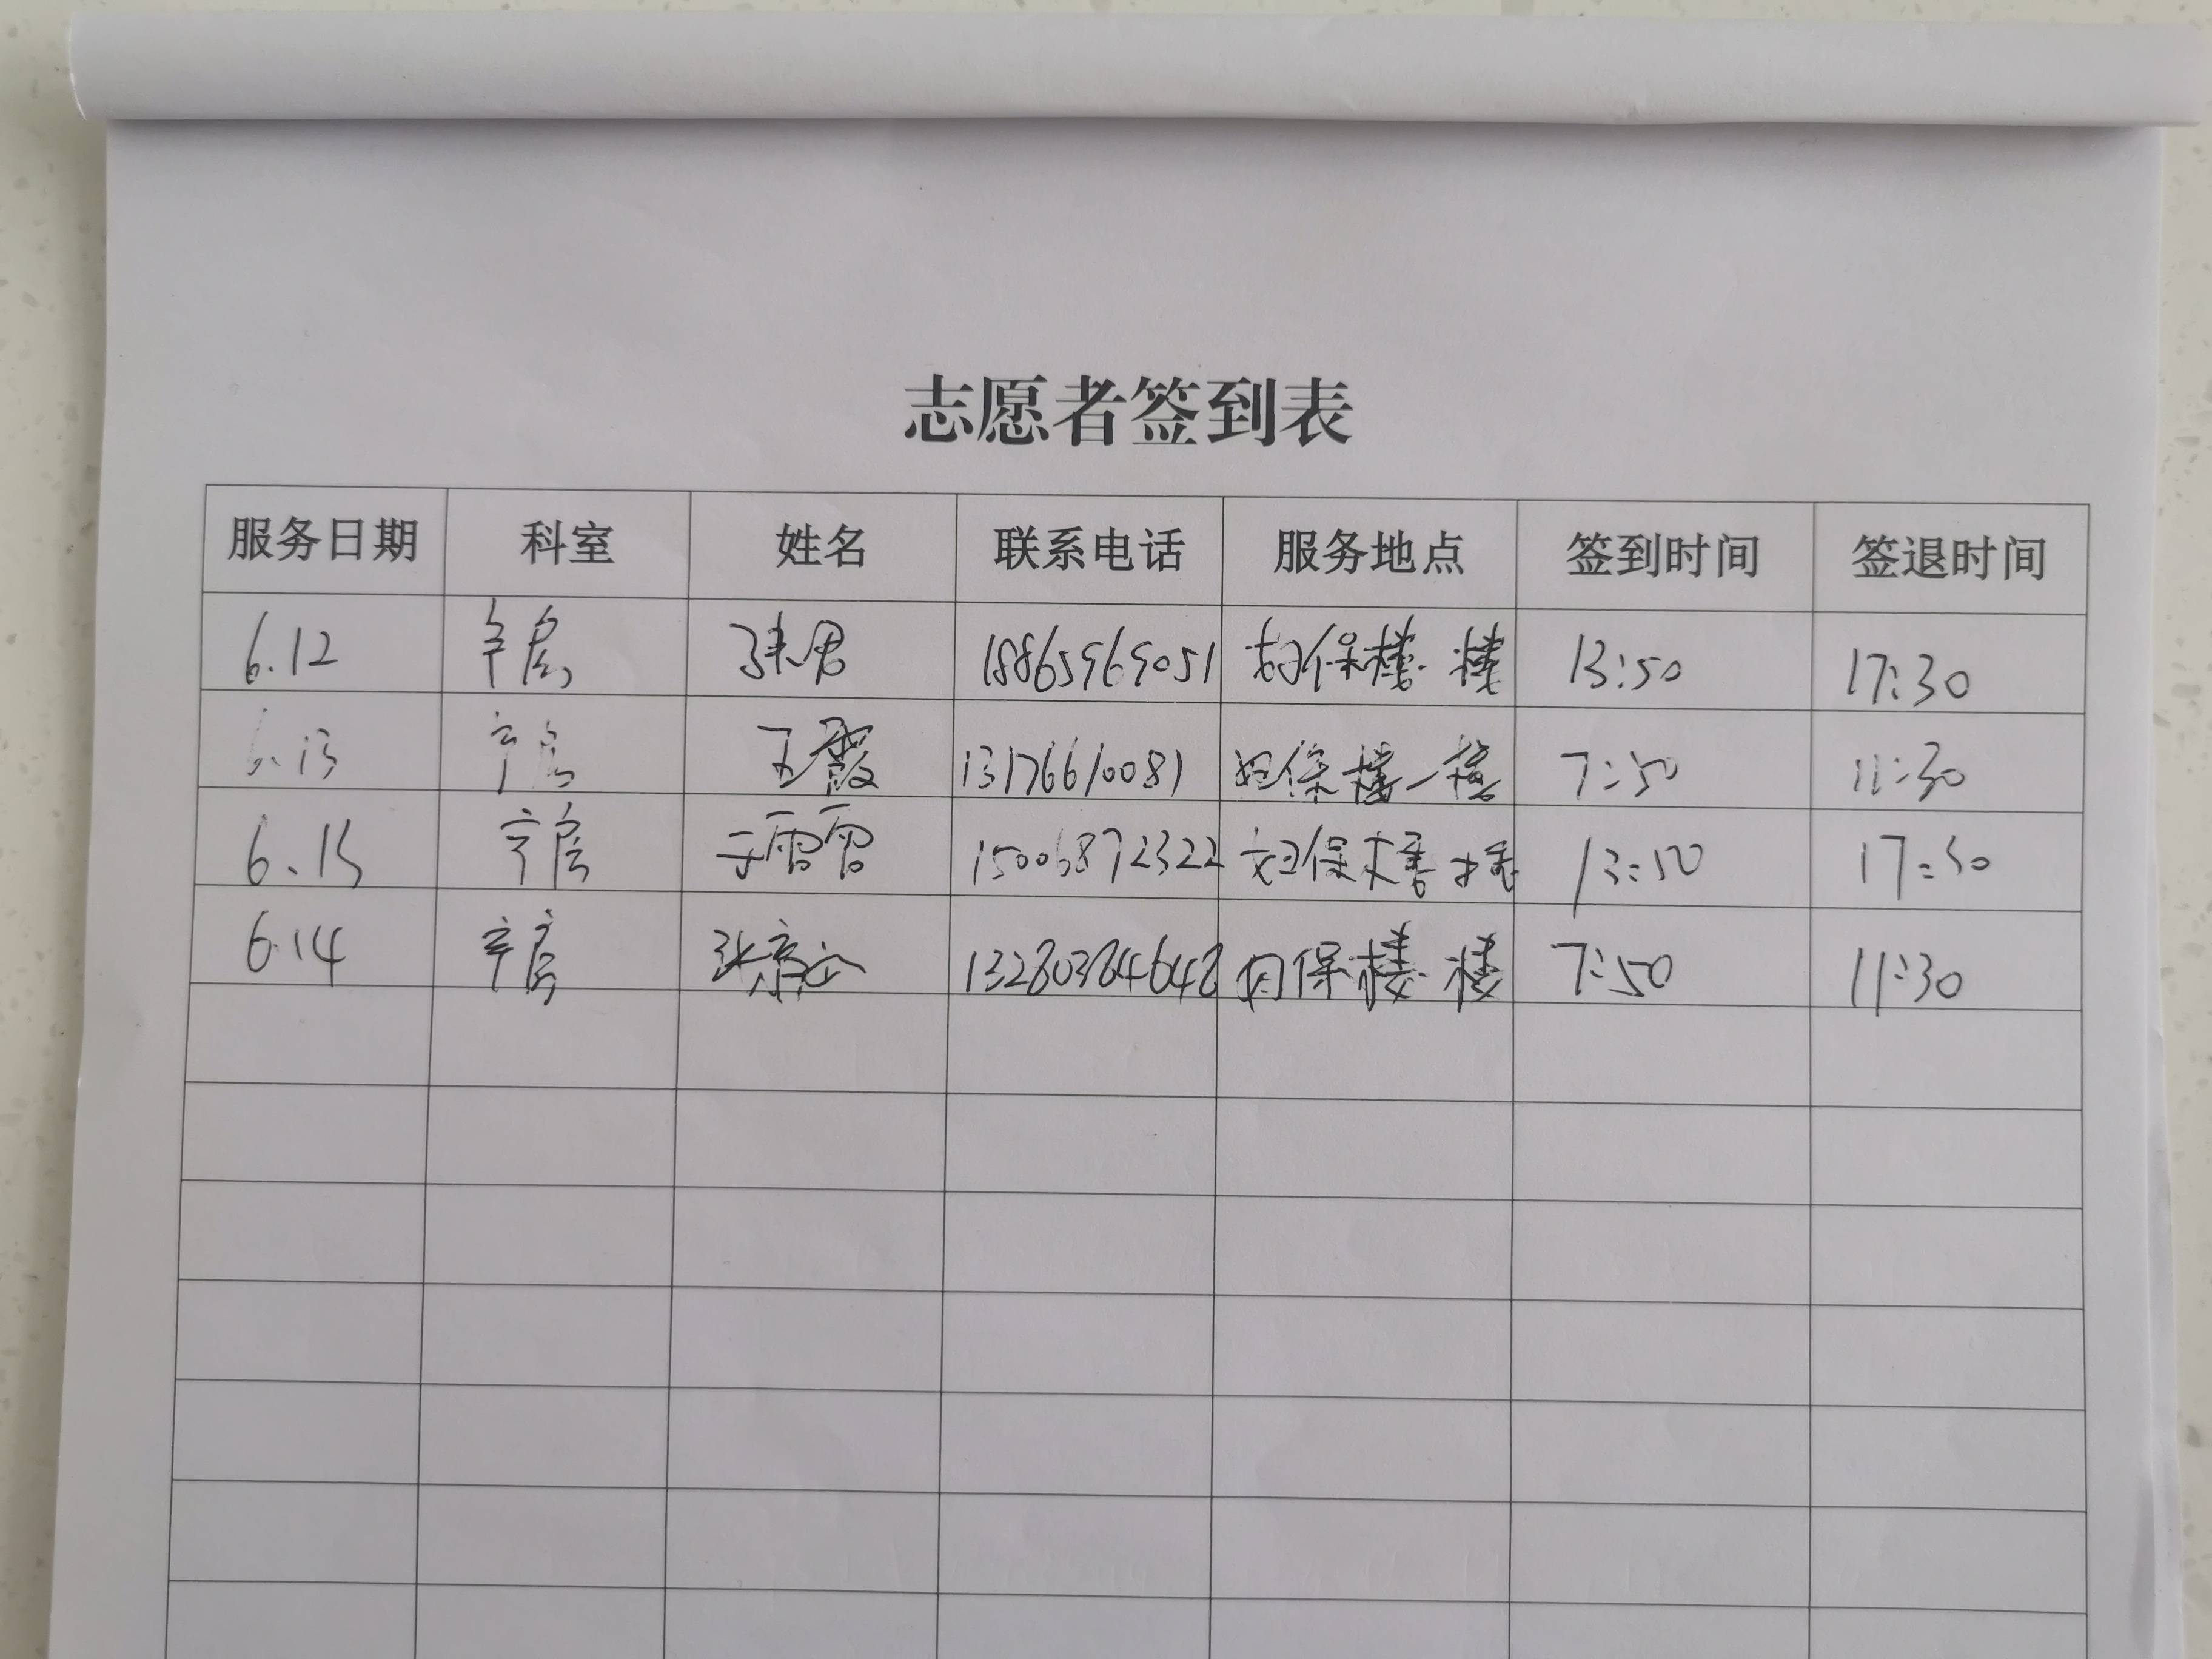 志愿者签到表
服务日期 科室 姓名 联系电话 服务地点 签到时间 签退时间
6.12 产房 张君 18865969051 妇保楼一楼 13:50 17:30
6.13 产房 王霞 13176610081 妇保楼一楼 7:50 11:30
6.13 产房 于雷雷 15006872322 妇保楼一楼 13:50 17:30
6.14 产房 张 13280384648 妇保楼一楼 7:50 11:30